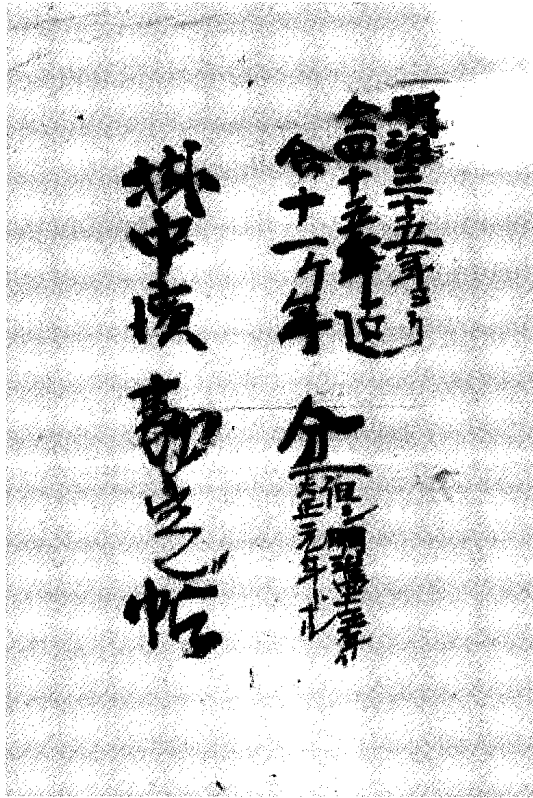 明治三十五年ヨリ
仝四十五年迄
合十一ケ年分
但シ明治四十五年ハ
大正元年ナル
掛中 勘定之帖